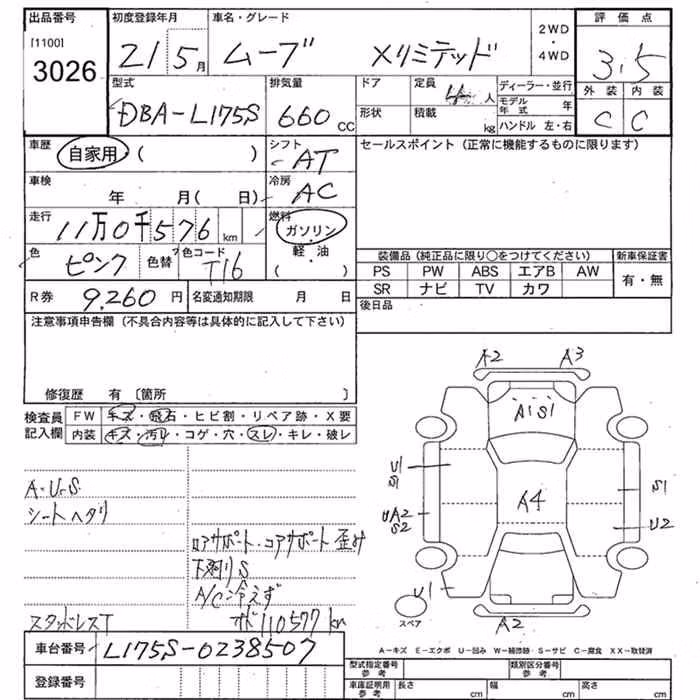 出品番号 初度登録年月 車名・グレード 評価点
[1100] 3026 21 5月 ムーブ Xリミテッド 2WD・4WD 3.5
型式 排気量 ドア 定員 4人 ディーラー・並行 外装 内装
DBA-L175S 660cc 形状 積載 kg モデル年式 年 ハンドル 左・右 C C
車歴 自家用 ( ) シフト AT セールスポイント(正常に機能するものに限ります)
車検 年 月( 日) 冷房 AC
走行 11万0千576km 燃料 ガソリン 軽・油 ( )
色 ピンク 色替 色コード T16
装備品(純正品に限り○をつけてください) 新車保証書
PS PW ABS エアB AW 有・無
SR ナビ TV カワ
R券 9,260円 名変通知期限 月 日 後日品
注意事項申告欄(不具合内容等は具体的に記入して下さい)
修復歴 有〔箇所 〕
検査員記入欄 FW キズ・飛石・ヒビ割・リペア跡・X要
内装 キズ・汚レ・コゲ・穴・スレ・キレ・破レ
A・U・S
シートヘタリ
ロアサポート・コアサポート歪み
下廻りS
A/C冷えず
スタッドレスT
110577km
A2 A3
A1 S1
U1 S1
A4
S1
UA2 S2
U2
U1
スペア
A2
A-キズ E-エクボ U-凹み W-補修跡 S-サビ C-腐食 XX-取替済
車台番号 L175S-0238507
登録番号
型式指定番号 参考 類別区分番号 参考
車庫証明用 参考 長さ cm 幅 cm 高さ cm